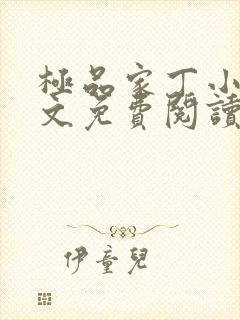 極品家丁小
文免費閱讀
伊童兒